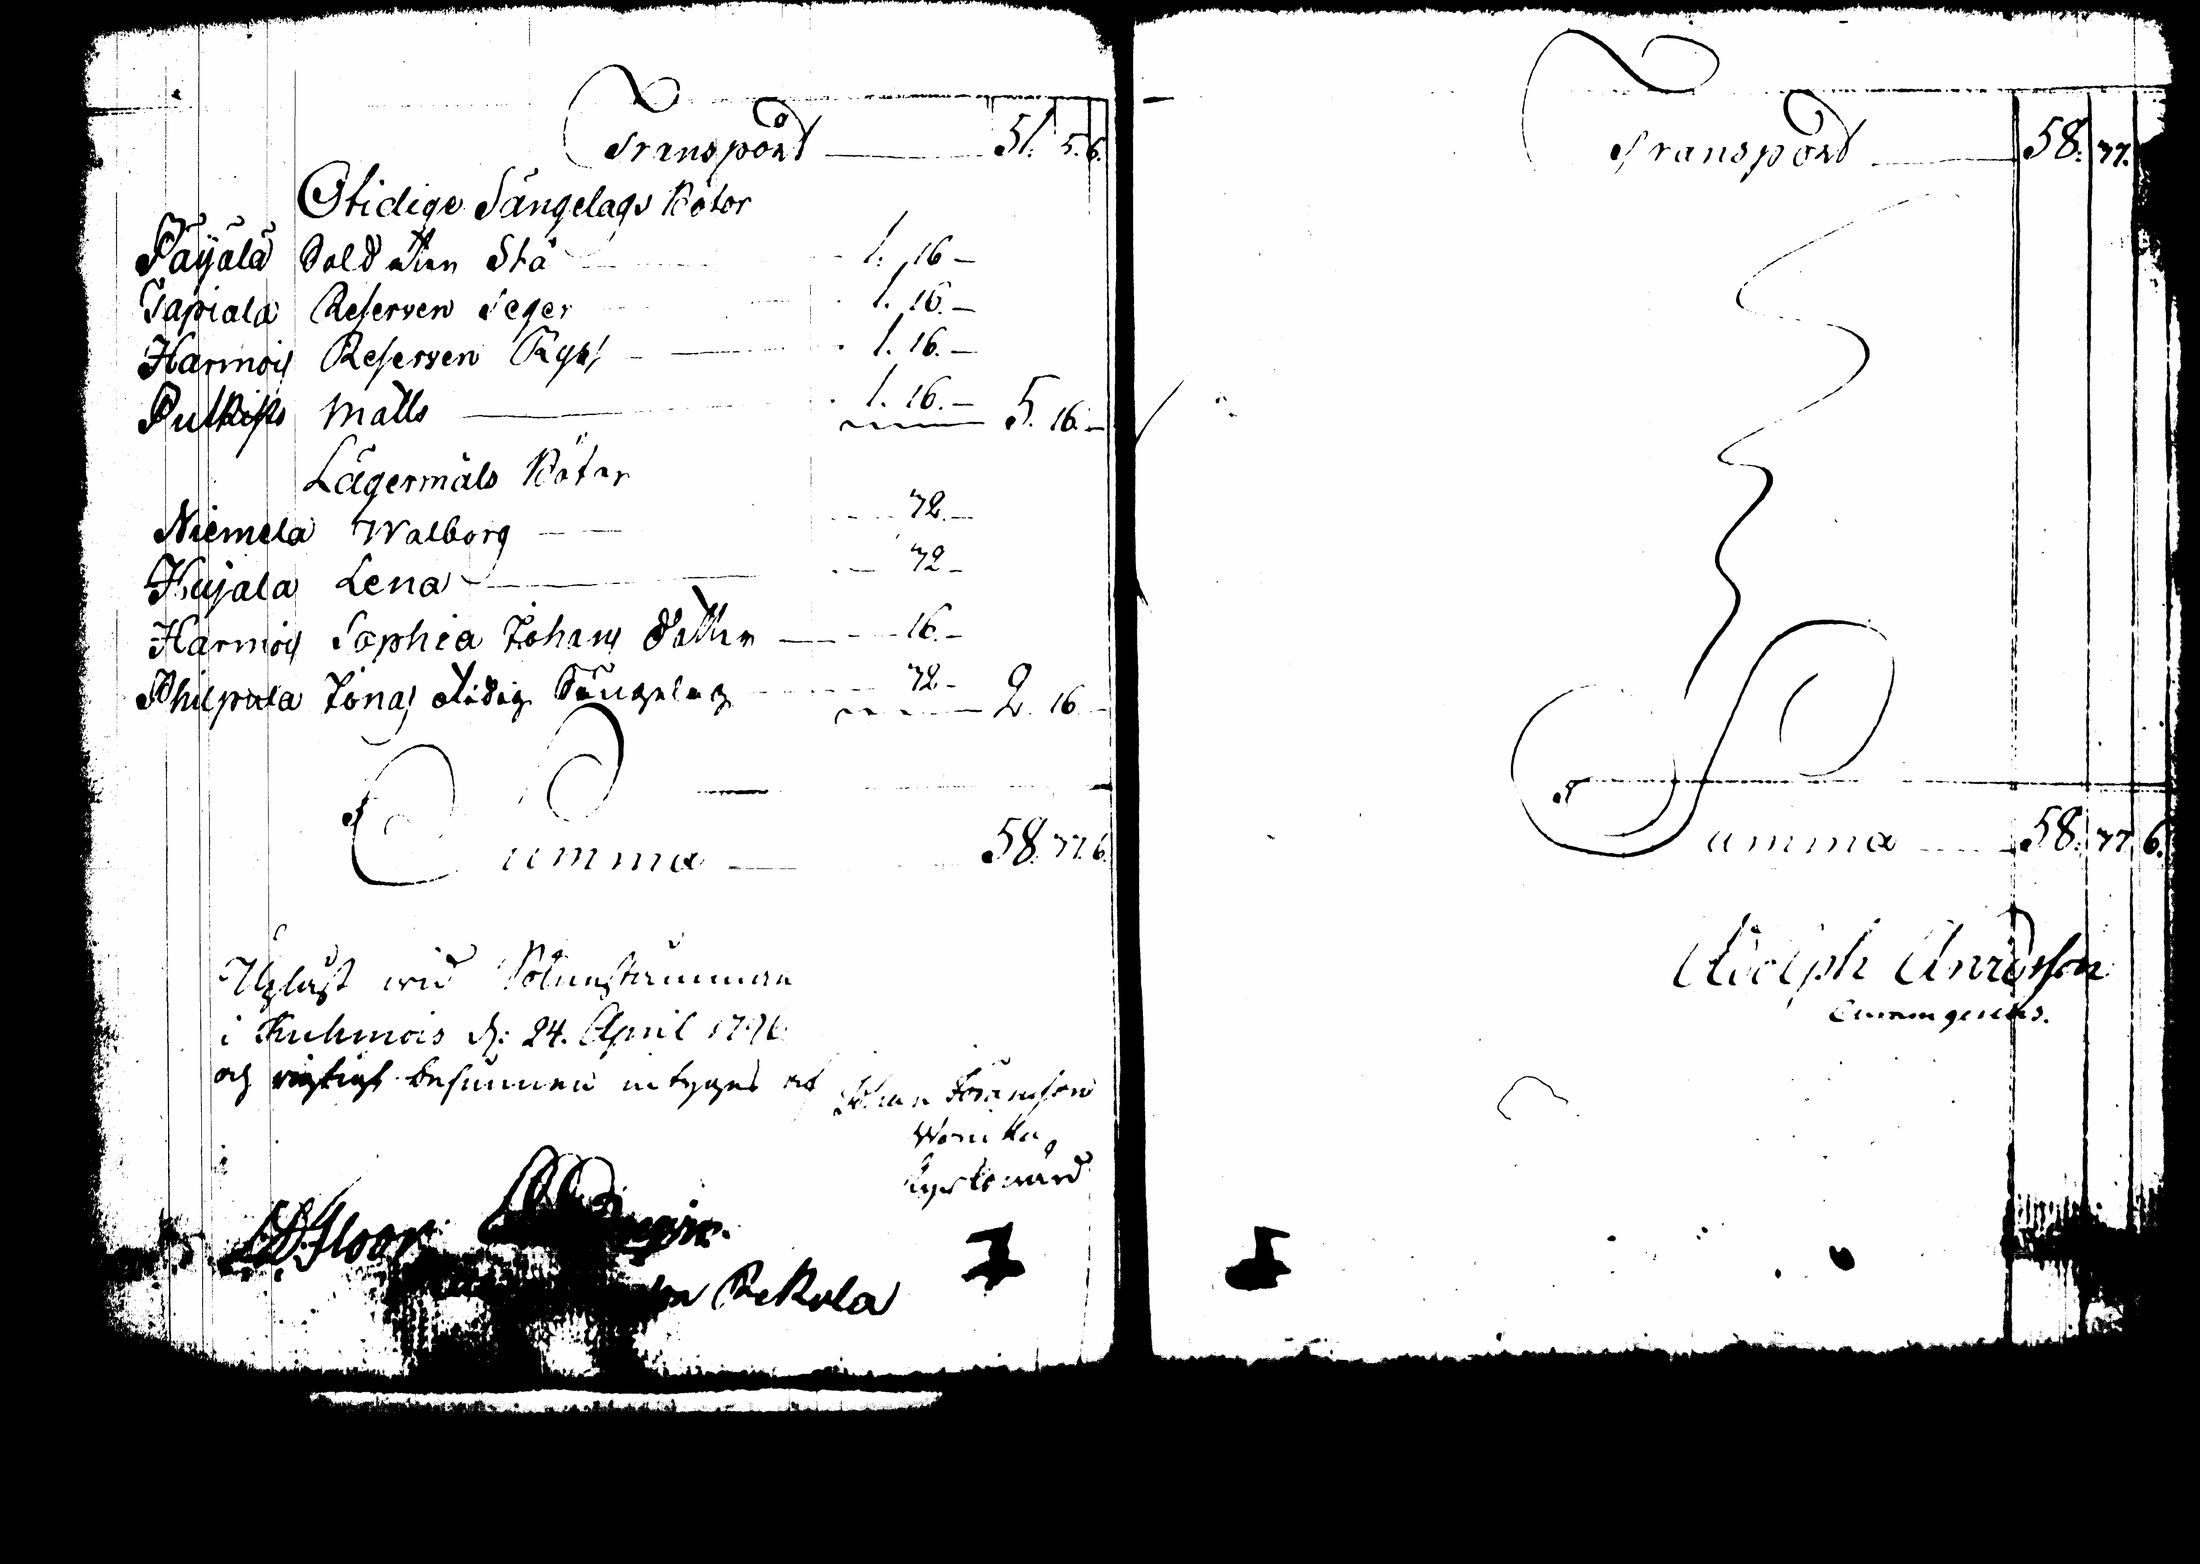 Transport 51. 5. 6.
Otidige Sängelags Böter
Päijälä Soldaten Stå 1. 16 -
Tapiala Reserven Seger 1. 16. -
Harmois Reserven Rysk 1. 16. -
Putkisto Matts 1. 16. - 5. 16. -
Lägermåls Böter
Niemela Walborg 32. -
Kujala Lena 32 -
Harmois Sophia Johans dotter 16. -
Philpula Jonas otidig Sängelag 32 - 2. 16
Summa 58. 37. 6.
Upläst wid Sokunstämman
i Kuhmois d: 24. April 1796
och riktigt befunnen intygas af Johan Göranson
Kyrkowärd
Floor
Rekola
Transport 58. 37.
Summa 58. 37. 6.
Adolph